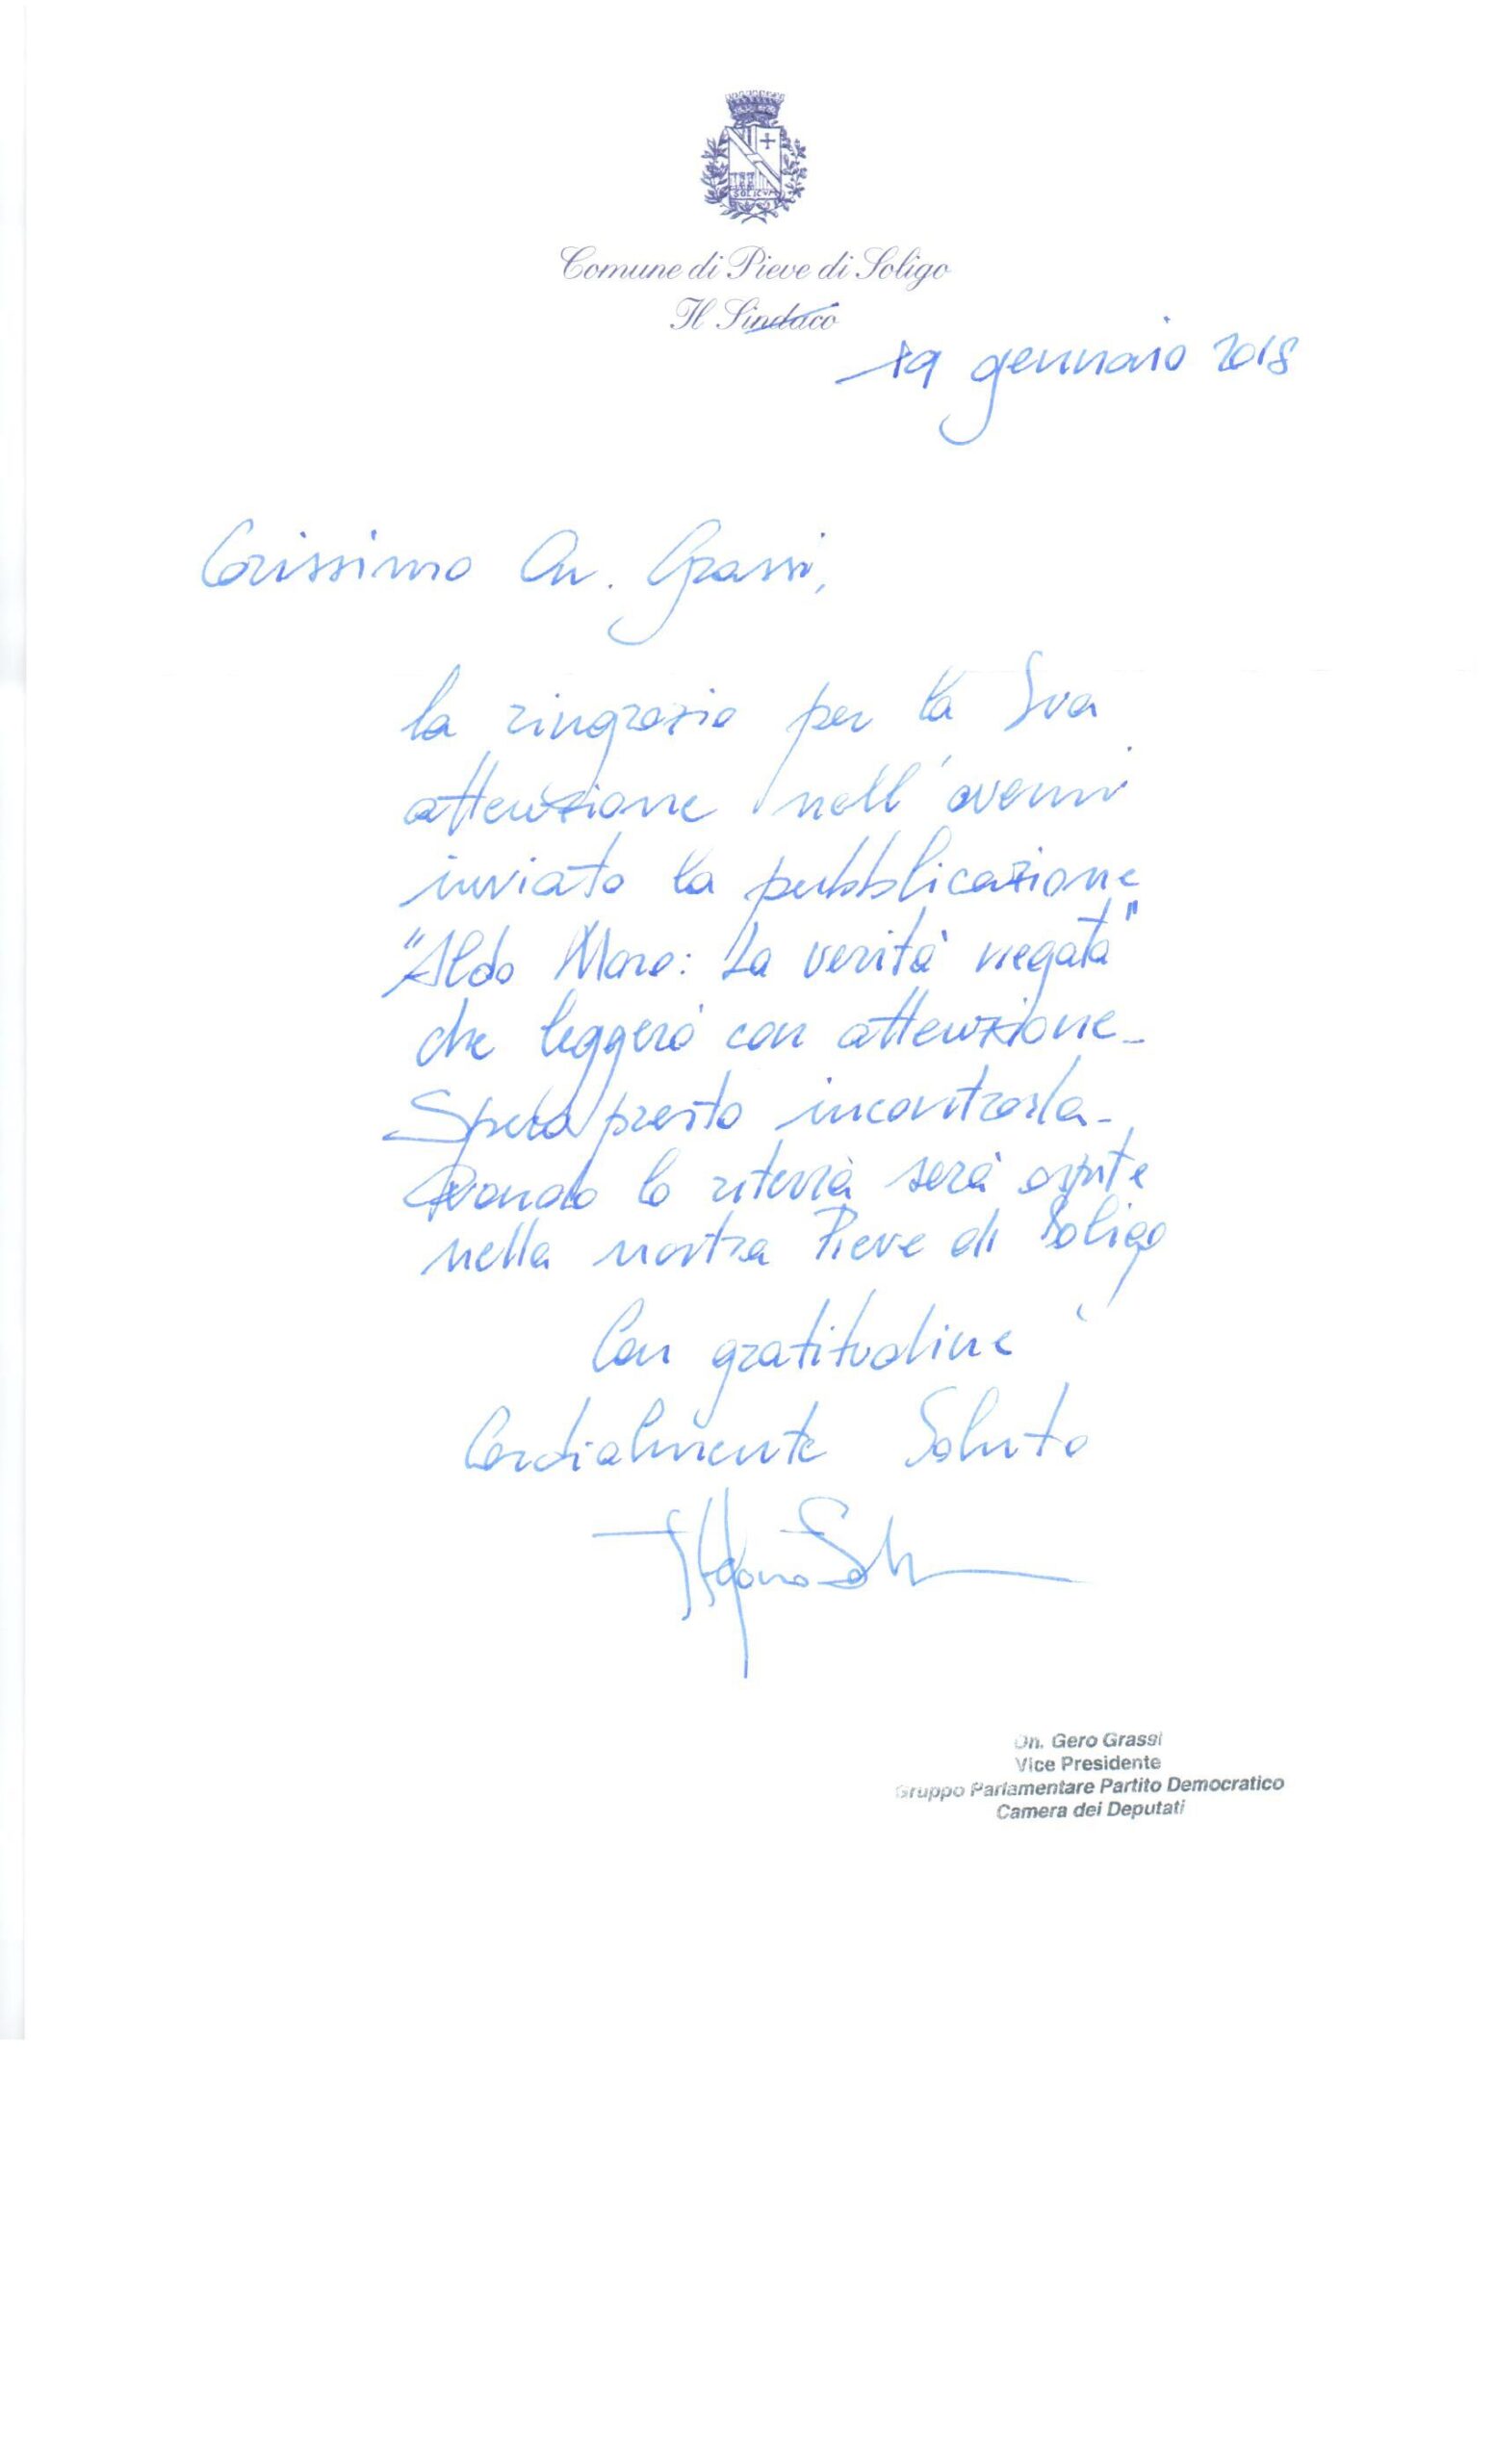 SOLIGUM
Comune di Pieve di Soligo
Il Sindaco
19 gennaio 2018
Carissimo On. Grassi,
la ringrazio per la Sua
attenzione nell'avermi
inviato la pubblicazione
"Aldo Moro: La verità negata"
che leggerò con attenzione_
Spero presto incontrarla_
Quando lo riterrà sarà ospite
nella nostra Pieve di Soligo
Con gratitudine
Cordialmente Saluto
Stefano Soldan
On. Gero Grassi
Vice Presidente
Gruppo Parlamentare Partito Democratico
Camera dei Deputati